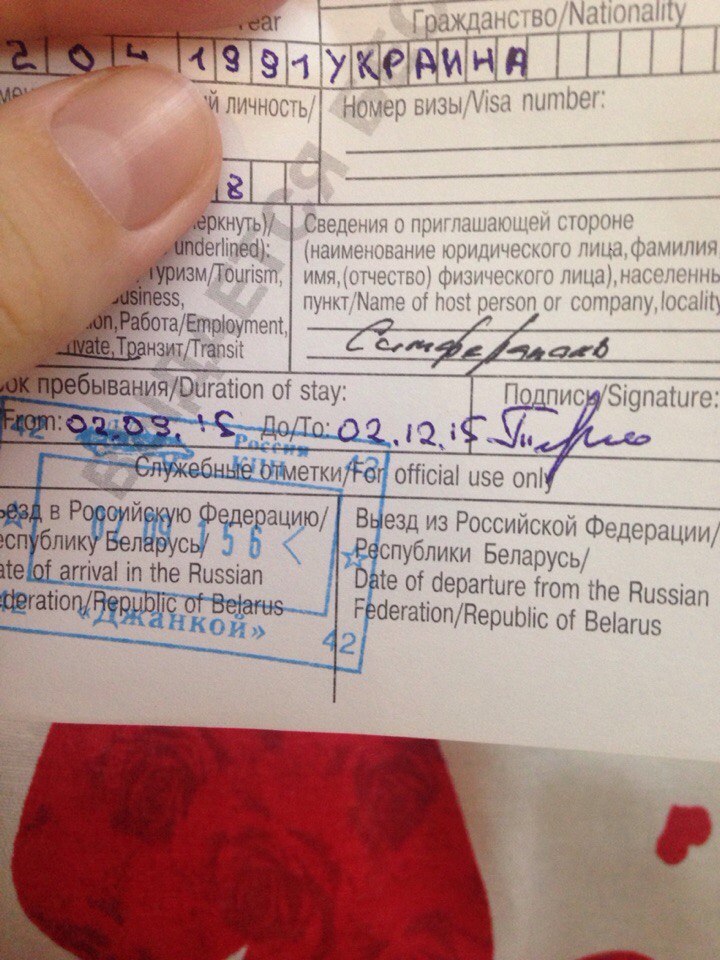 Year Гражданство/Nationality
204 1991 УКРАИНА
й личность/ Номер визы/Visa number:
8
еркнуть)/ Сведения о приглашающей стороне
underlined): (наименование юридического лица, фамилия,
Туризм/Tourism, имя,(отчество) физического лица), населенны
usiness, пункт/Name of host person or company, locality
on, Работа/Employment,
ivate, Транзит/Transit Симферополь
ок пребывания/Duration of stay: Подпись/Signature:
From: 02.09.15 До/To: 02.12.15
Россия
КПП 42
42
Служебные отметки/For official use only
ъезд в Российскую Федерацию/ Выезд из Российской Федерации/
еспублику Беларусь/ Республики Беларусь/
02 09 1 56 <
ate of arrival in the Russian Date of departure from the Russian
ederation/Republic of Belarus Federation/Republic of Belarus
42 «Джанкой» 42
ВЫДАЕТСЯ БЕС